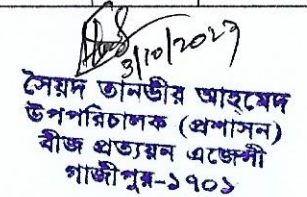 3/10/2027
সৈয়দ তানভীর আহমেদ
উপপরিচালক (প্রশাসন)
বীজ প্রত্যয়ন এজেন্সী
গাজীপুর-১৭০১